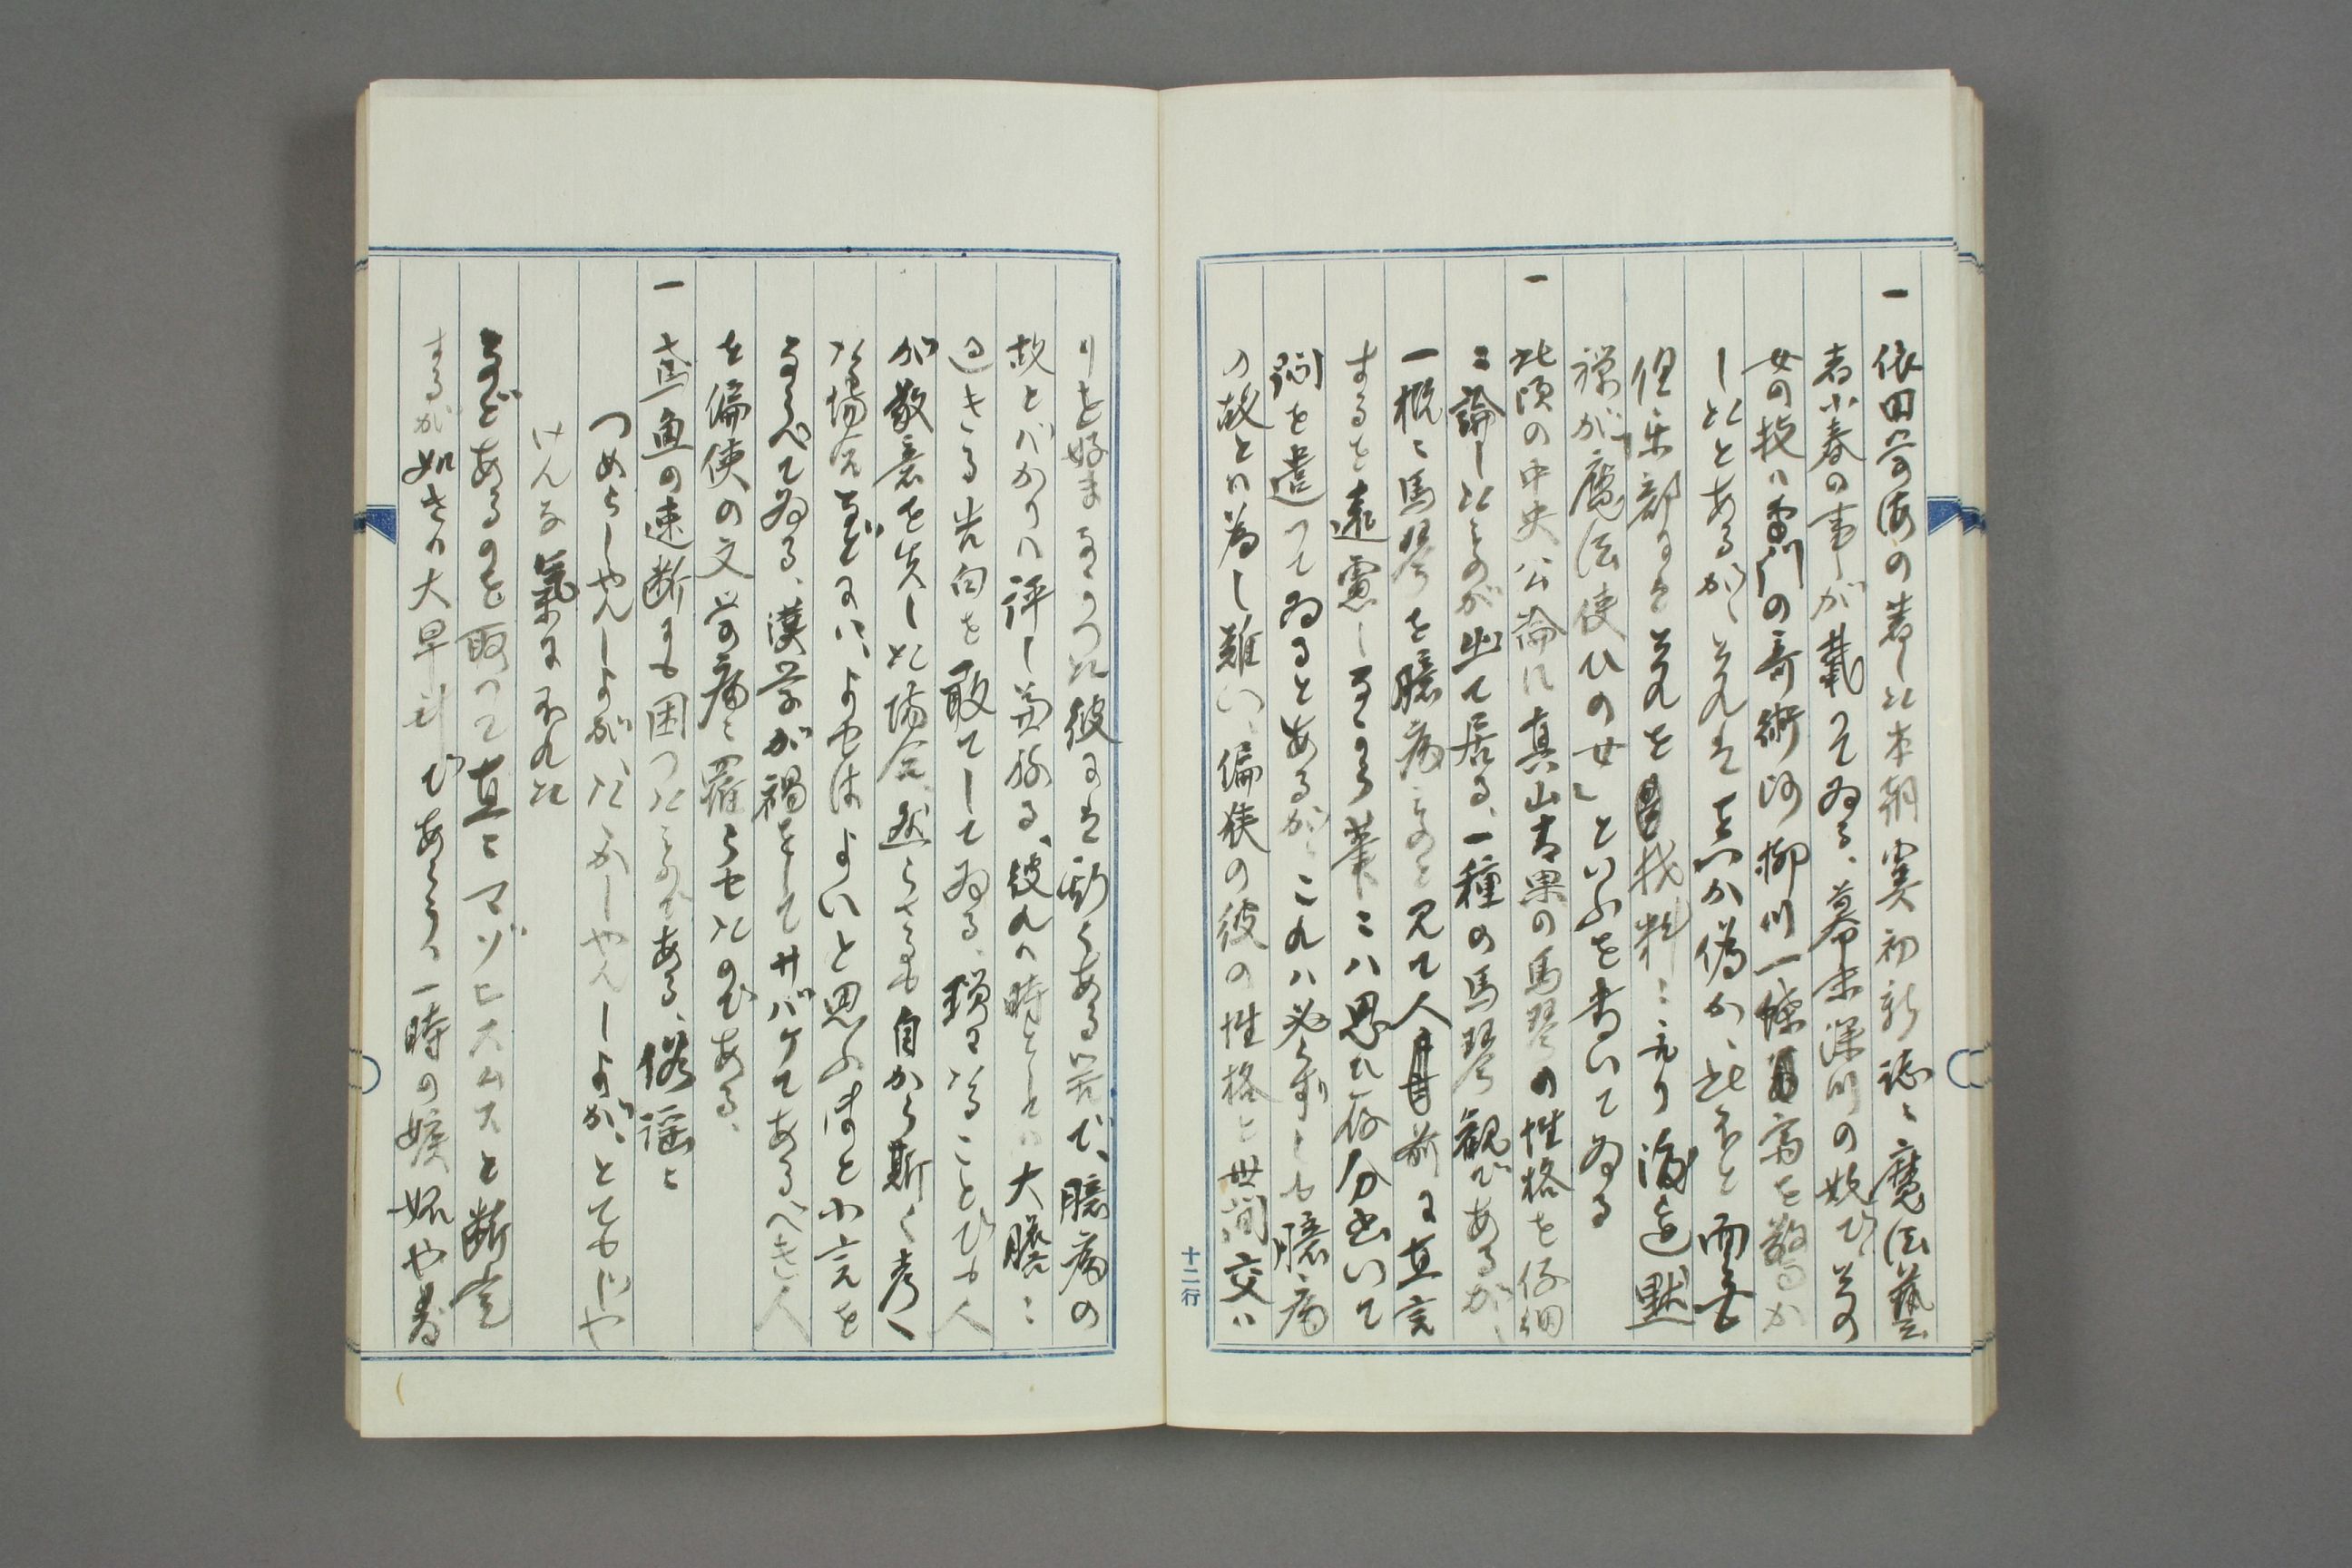 一 依田学海の著した本朝虞初新誌に魔法藝
者小春の事が載つてゐる、幕末深川の妓で、其の
女の技は雷門の奇術師柳川一蝶斎を驚か
したとあるが、其れは真か偽か、此ほど両年
但楽部よりも其れを材料に元り渡辺黙
禅が「魔法使ひの女」といふを書いてゐる
一 此頃の中央公論に真山青果の馬琴の性格を仔細
に論じたものが出て居る、一種の馬琴観であるが、
一概に馬琴を臆病ものと見て人の前で直言
するを遠慮しながら筆には思ふ存分書いて
悶を遣つてゐるとあるが、これは必ずしも臆病
の故とは為し難い、偏狭の彼の性格と世間交は
りを好まなかつた彼には斯くある筈で、臆病の
故とばかりは評し兼ねる、彼れは時としては大膽に
過ぎる告白を敢てしてゐる、瑣々たることでも人
が敬意を失した場合、然らざるも自から斯く考へ
た場合などには、よせばよいと思ふほど小言を
ならべてゐる、漢学が禍をしてサバケてあるべき人
を偏狭の文学の病に罹らせたのである、
一 鳶魚の速断にも困つたものである、俗謡に
つめらしやんしよがたゝかしやんしよが、とてもじや
けんな氣に不れた
などあるのを取つて直にマゾヒスムスと断定
するが如きは大早計であらう、一時の嫉妬や